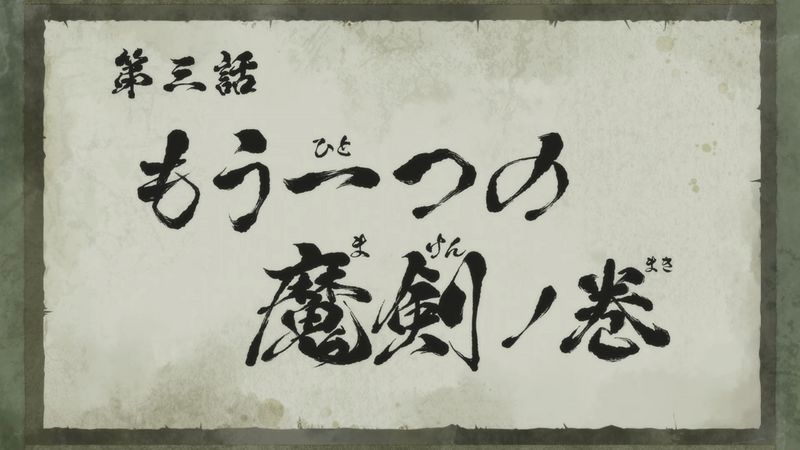 第三話
もう一つの
ひと
魔剣ノ巻
まけん
まき